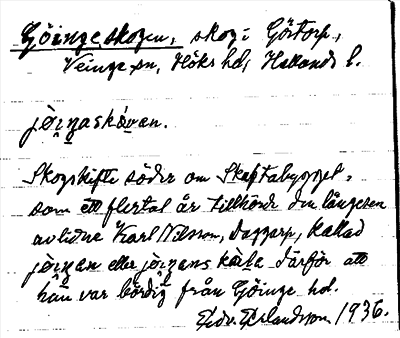 Göingeskogen, skog i Görtorp,
Veinge sn, Höks hd, Hallands l.
jöi̯ŋaskó̱van.
Skogskifte söder om Skaftabygget,
som ett flertal år tillhörde den längesen
avlidne Karl Nilsson, Daggarp, kallad
jöi̯ŋan eller jöi̯ŋans kála därför att
han var bördig från Göinge hd.
Edv. Erlandsson 1936.